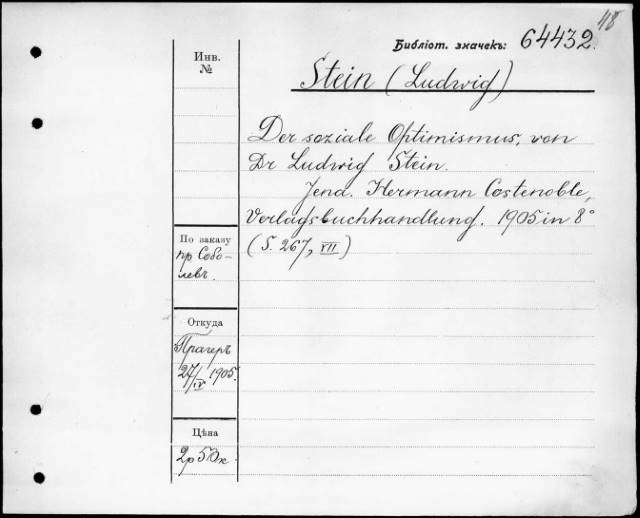 48
Библіот. значекъ: 64432.
Инв.
№
Stein (Ludwig)
Der soziale Optimismus, von
Dr Ludwig Stein.
Jena. Hermann Costenoble,
Verlagsbuchhandlung. 1905 in 8°
(S. 267, VII)
По заказу
пр Собо-
левъ.
Откуда
Прагеръ
27/IV 1905.
Цѣна
2р 50к